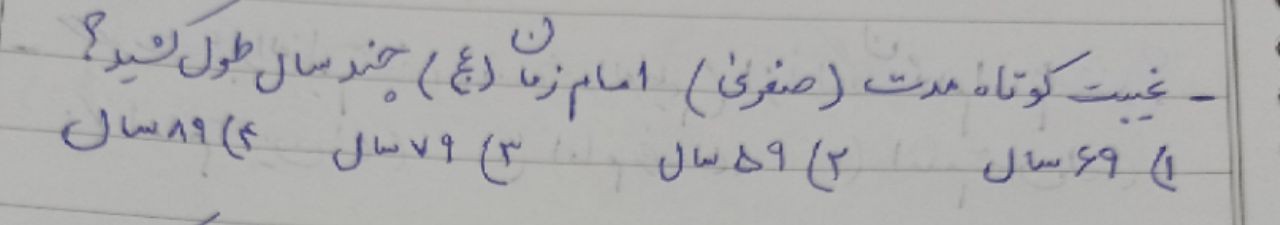 - غیبت کوتاه مدت (صغری) امام زمان (عج) چند سال طول کشید؟
۱) ۶۹ سال ۲) ۵۹ سال ۳) ۷۹ سال ۴) ۸۹ سال